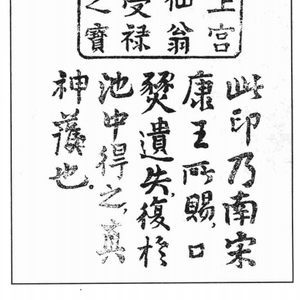 上宮
仙翁
受禄
之寶
此印乃南宋
康王所賜,□
燹遺失,復於
池中得之,真
神護也.